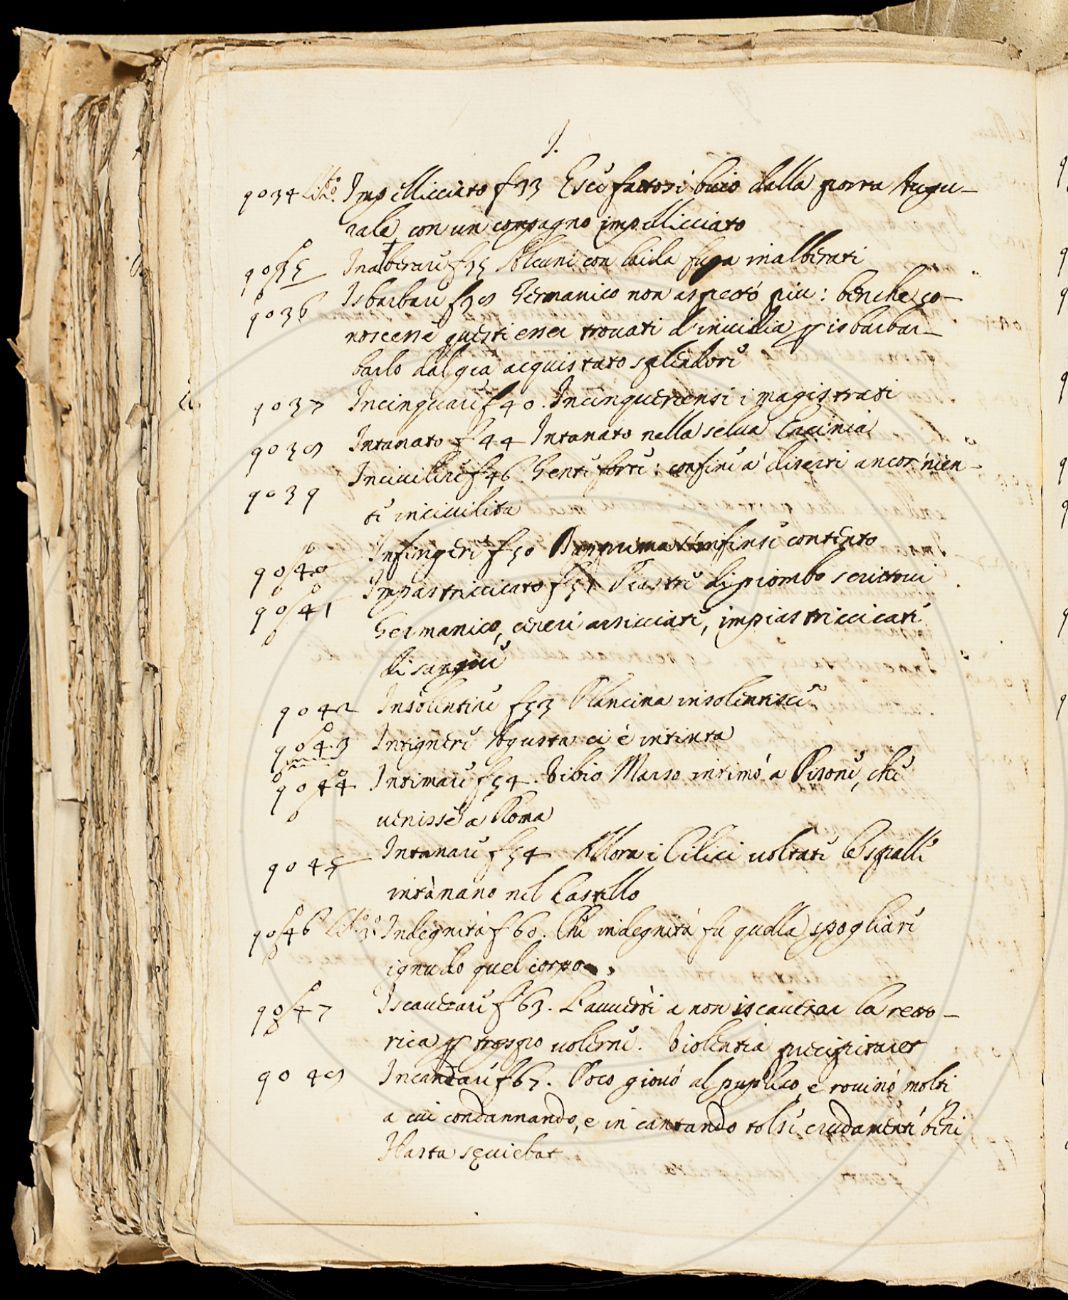 I.
9034 Lib.º 2 Impellicciato f 33 Esce fattosi buio dalla porta Augu-
rale con un compagno impellicciato
9035 Inalberare f 35 Alcuni con la fuga inalberati
9036 Isbarbare f 38 Germanico non aspettò più: benche co-
noscesse questi esser trovati d'invidia p isbarbar-
barlo dal gia acquistato splendore
9037 Incinquare f 40. Incinquerensi i magistrati
9038 Intanato f 44 Intanato nella selva Cacinia
9039 Incivilire f 46 Genti forti: confini a' diserti ancor nien-
te incivilita
9040 Infingere f 50 infinse contento
9041 Impastricciato f 51 Piastre di piombo scrittovi
Germanico, ceneri arsicciate, impiastriccicate
di sangue
9042 Insolentire f 53 Plancina insolentisce
9043 Intignere Agusta ci è intinta
9044 Intimare f 54. Vibio Marso intimò a Pisone, che
venisse a Roma
9045 Intanare f 54 Allora i Cilici voltate le spalle
intanano nel Castello
9046 Lib.º 3º Indegnità f 60. Che indegnità fu quella spogliare
ignudo quel corpo
9047 Iscavezare f 63. L'avvertì a non iscavezar la reto-
rica p troppo volerne. Violentia præcipitaret
9048 Incantare f 67. Poco giovò al publico, e rovinò molti
a cui condannando, e in cantando tolse crudamente beni
Hasta sæviebat